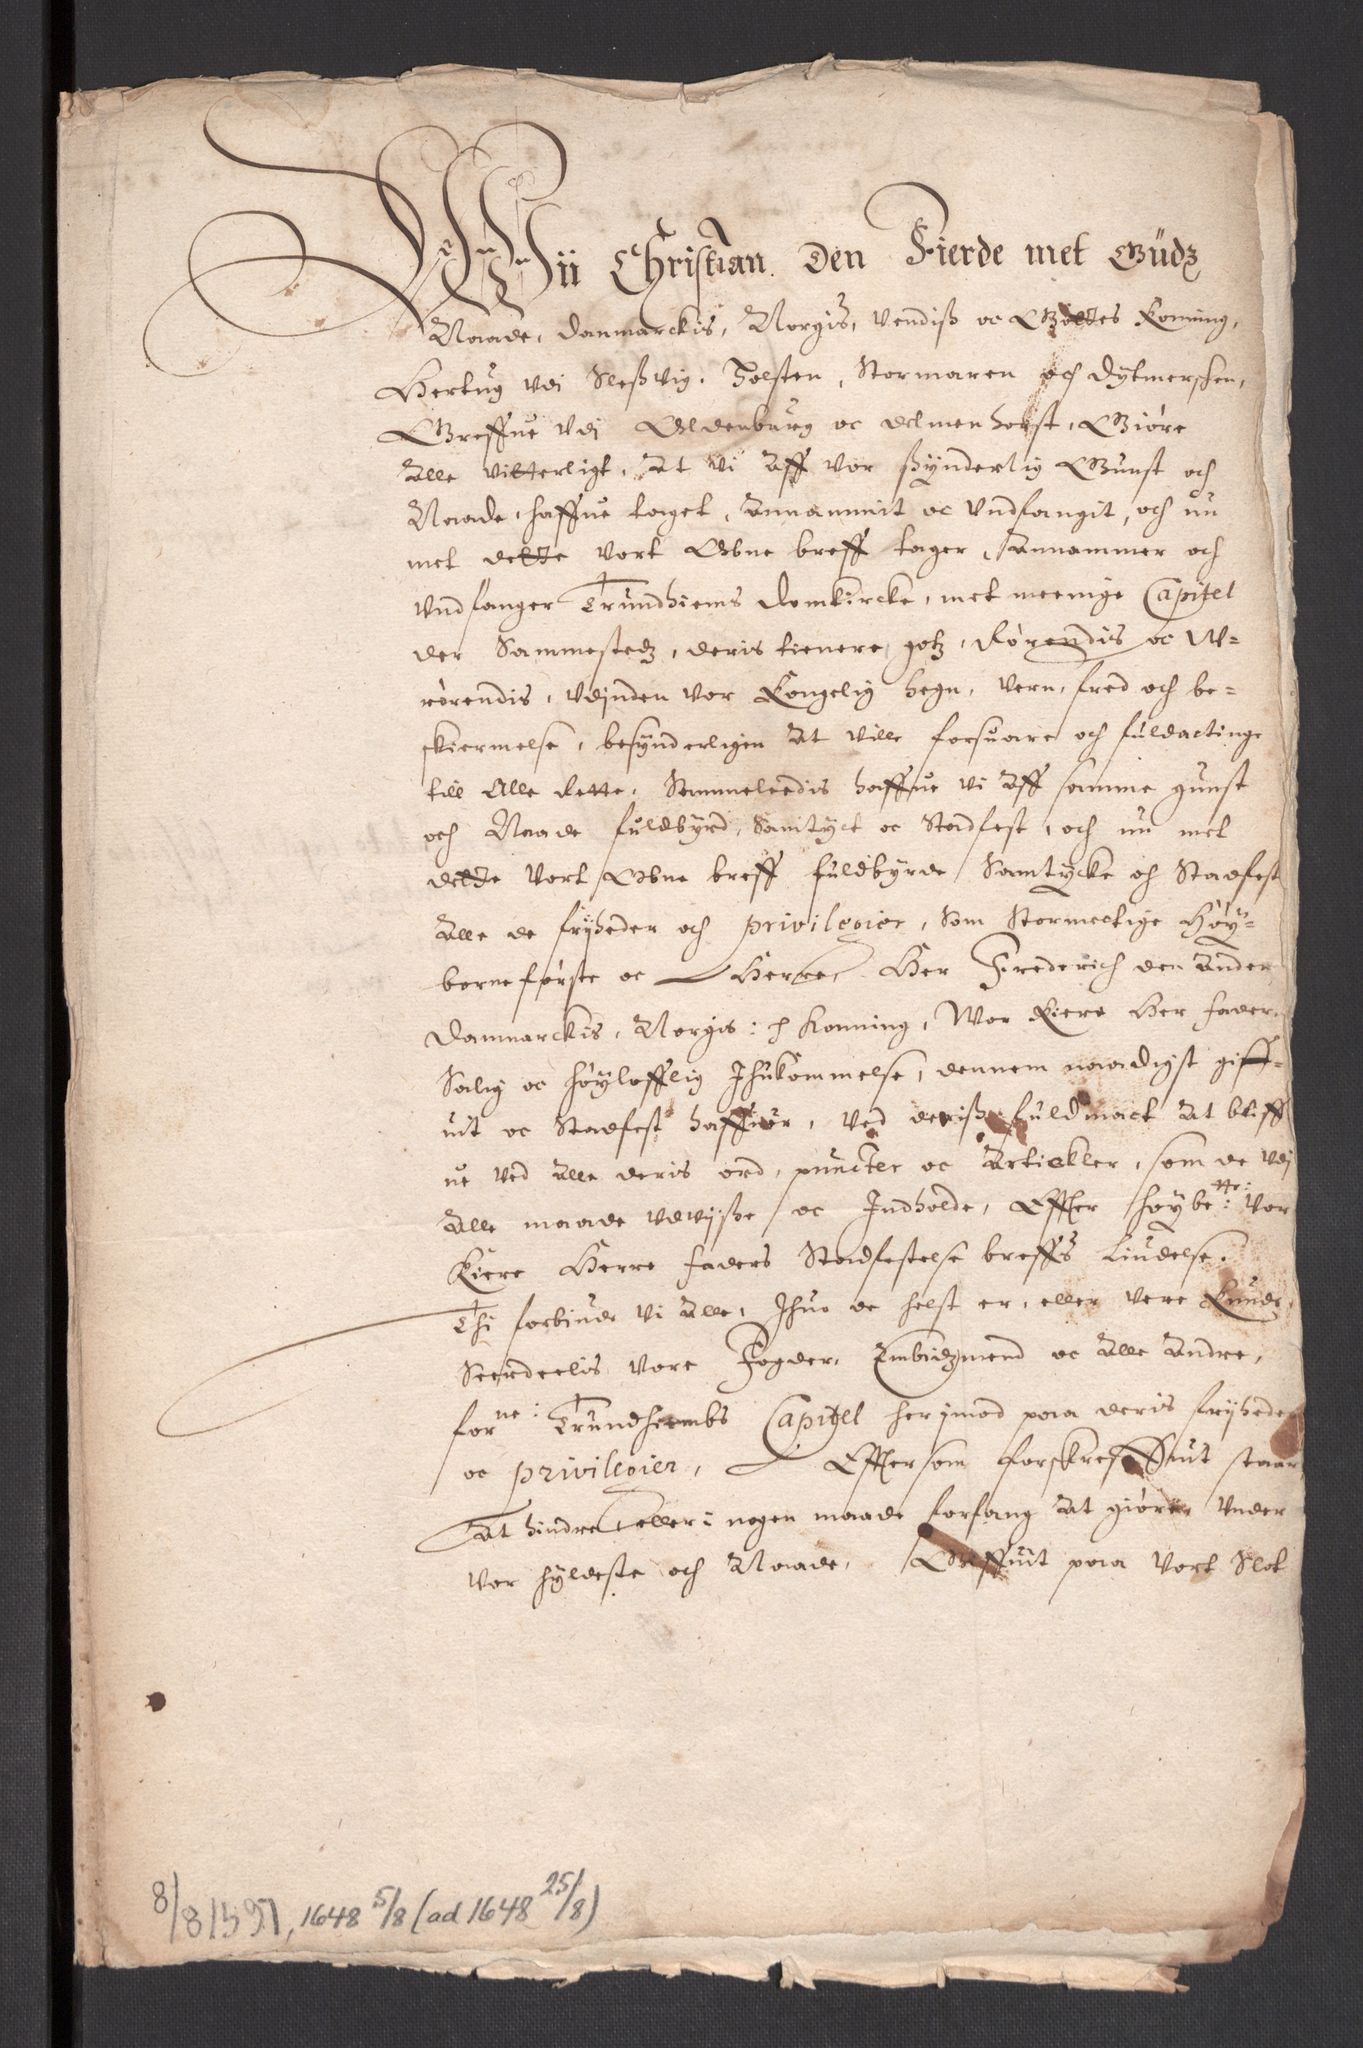 Wii Christian den Fierde met Gudz
Naade, Danmarckis, Norgis, Vendiß oc Gottes Koning,
Hertug vdi Sleßvig, Holsten, Stormaren och Dytmerschen,
Greffue vdj Oldenburg oc Delmenhorst, Giøre
Alle vitterligt, At vi Aff vor synderlig Gunst och
Naade, haffue taget, Annammit oc vndfangit, och nu
met dette vort Obne breff tager, Annammer och
vndfanger Trundhiems Domkircke, met meenige Capitel
der Sammestedz, deris tienere, gotz, Rørendis oc W-
rørendis, vdjnden vor Kongelig hegn, vern, fred och be-
skiermelse, besynderligen At ville forsuare och fuldactinge
till Alle Rette. Sammeleedis haffue vi Aff samme gunst
och Naade fuldbyrd, Samtyct oc Stadfest, och nu met
dette vort Obne breff fuldbyrde Samtycke och Stadfest
Alle de fryheder och privilegier, som Stormectige Høy-
borne første oc Herre, Her Frederich den Anden
Danmarckis, Norgis: ꝛc Konning, Wor Kiere Her fader,
Salig oc høylofflig Ihukommelse, dennem naadigst giff-
uit oc Stadfest haffuer, ved deriß fuldmact At bliff
ue ved Alle deris ord, puncter oc Artickler, som de vdj
Alle maade vdvjße oc Indholde, Effter høybe:tte: vor
Kiere Herre faders Stadfestelse breffs liudelse.
Thi forbiude vi Alle, Ihuo de helst er, eller vere kunde,
Seerdeelis vore Fogder, Embidzmend oc Alle Andre,
forne: Trundhiembs Capitel herjmod paa deris fryheder
oc privilegier, Effter som forskreffuit staar
At hindre eller i nogen maade forfang At giøre vnder
vor hyldeste och Naade. Giffuit paa vort Slot
8/8 1591, 1648 5/8 (ad 1648 25/8)